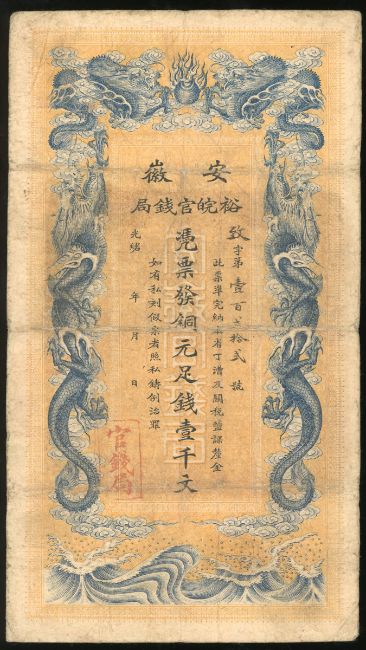 安徽
裕皖官錢局
致字第壹百弍拾弍號
此票準完納本省丁漕及關稅鹽課釐金
憑票發銅元足錢壹千文
如有私刻假票者照私鑄例治罪
光緒 年 月 日
官錢局